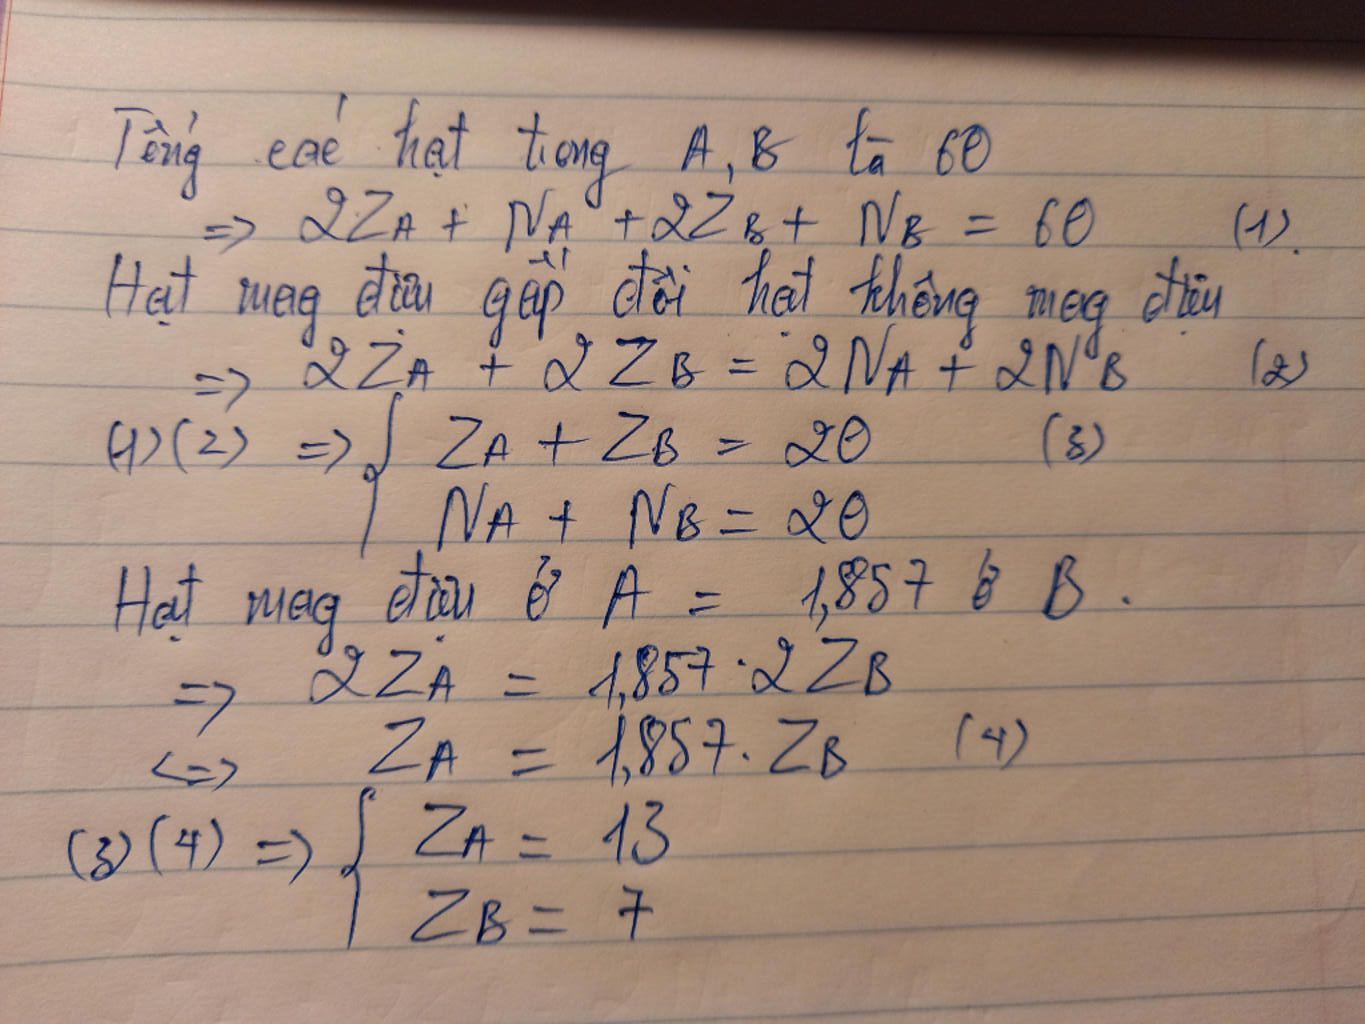 Tổng các hạt trong A, B là 60
=> 2ZA + NA + 2ZB + NB = 60 (1).
Hạt mag điện gấp đôi hạt không mag điện
=> 2ZA + 2ZB = 2NA + 2NB (2)
(1) (2) => { ZA + ZB = 20 (3)
NA + NB = 20
Hạt mag điện ở A = 1,857 ở B.
=> 2ZA = 1,857 . 2ZB
<=> ZA = 1,857 . ZB (4)
(3) (4) => { ZA = 13
ZB = 7